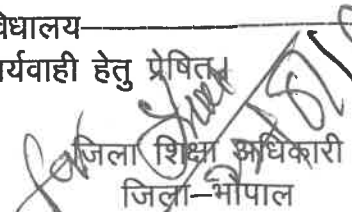 विधालय
र्यवाही हेतु प्रेषित।
जिला शिक्षा अधिकारी
जिला–भोपाल